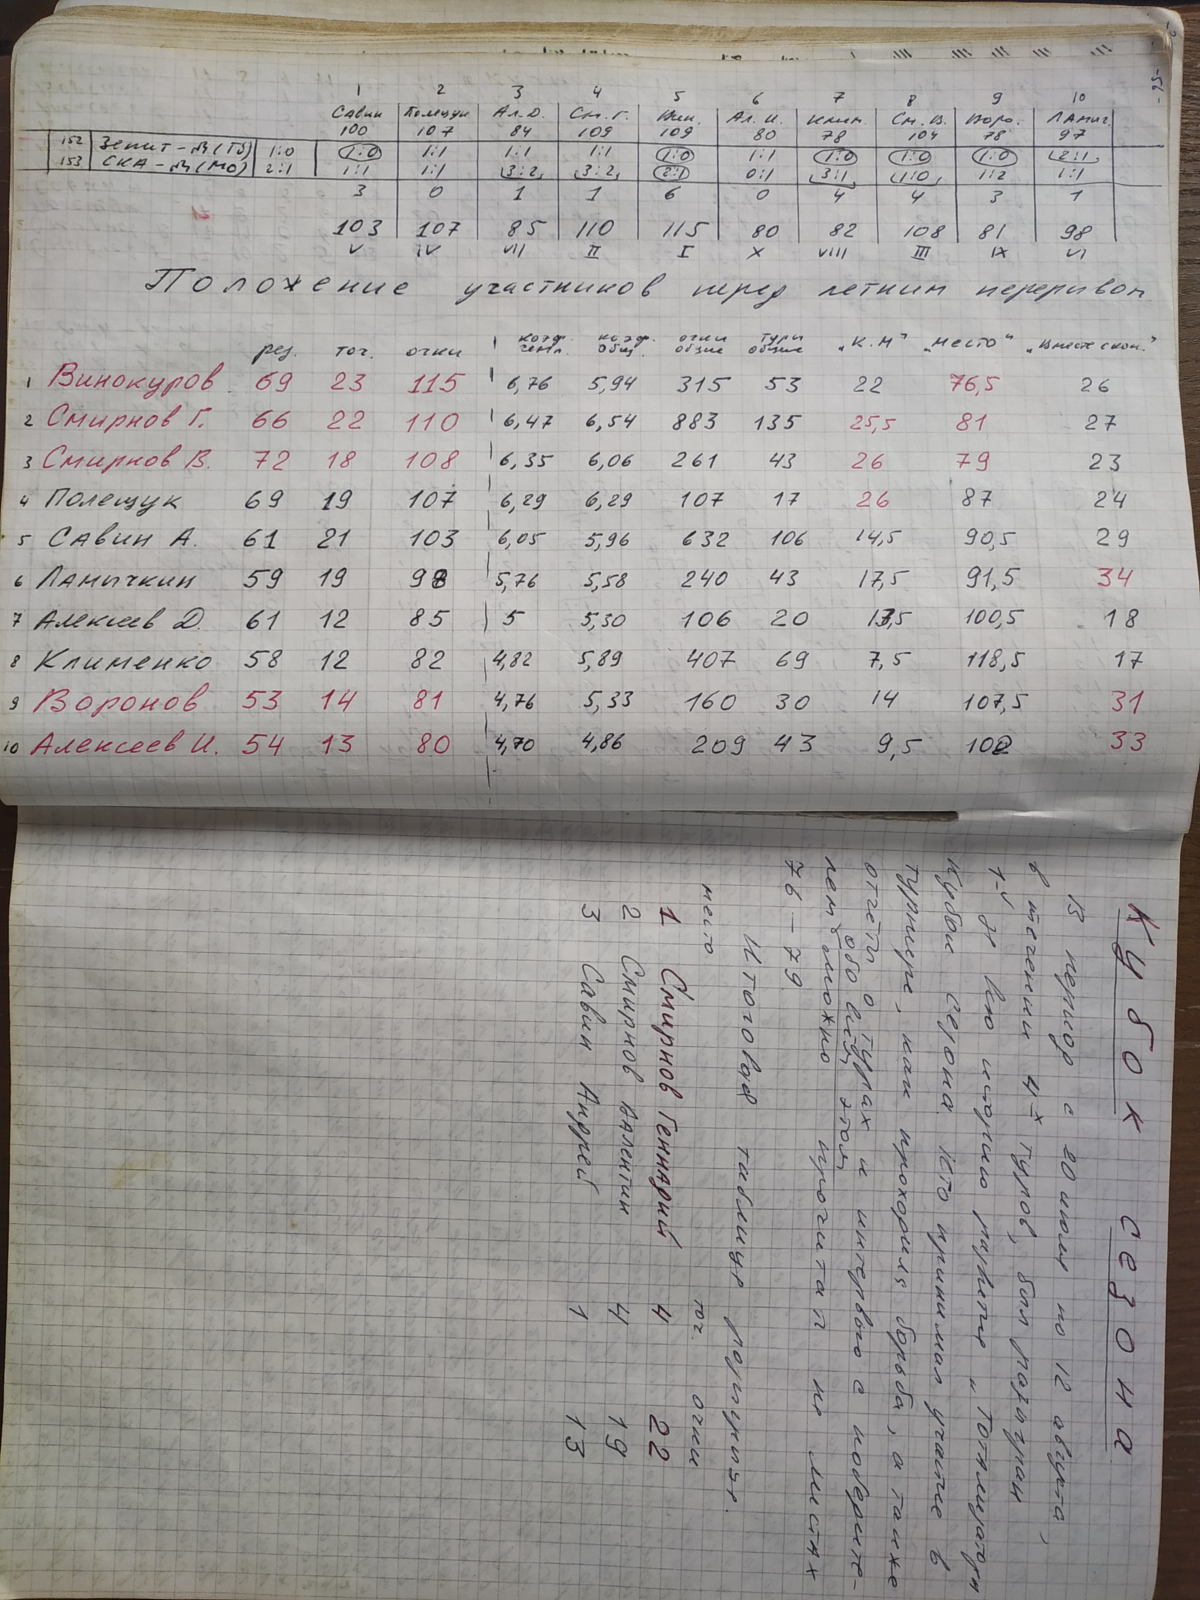 -25-
1 2 3 4 5 6 7 8 9 10
Савин Полещук Ал.Д. См.Г. Вин. Ал.И. Клим. См.В. Воро. Ламыч.
100 107 84 109 109 80 78 104 78 97
152 Зенит - 1:0 1:0 1:1 1:1 1:1 1:0 1:1 1:0 1:0 1:0 2:1
153 СКА - (МО) 2:1 1:1 1:1 3:2 3:2 2:1 0:1 3:1 1:0 1:2 1:1
3 0 1 1 6 0 4 4 3 1
103 107 85 110 115 80 82 108 81 98
V IV VII II I X VIII III IX VI
Положение участников перед летним перерывом
рез. точ. очки коэф. чемп. коэф. общ. очки общие туры общие „К.М" „место"
1 Винокуров 69 23 115 6,76 5,94 315 53 22 76,5 26
2 Смирнов Г. 66 22 110 6,47 6,54 883 135 25,5 81 27
3 Смирнов В. 72 18 108 6,35 6,06 261 43 26 79 23
4 Полещук 69 19 107 6,29 6,29 107 17 26 87 24
5 Савин А. 61 21 103 6,05 5,96 632 106 14,5 90,5 29
6 Ламычкин 59 19 98 5,76 5,58 240 43 17,5 91,5 34
7 Алексеев Д. 61 12 85 5 5,30 106 20 13,5 100,5 18
8 Клименко 58 12 82 4,82 5,89 407 69 7,5 118,5 17
9 Воронов 53 14 81 4,76 5,33 160 30 14 107,5 31
10 Алексеев И. 54 13 80 4,70 4,86 209 43 9,5 102 33
Кубок сезона
В период с 20 июля по 12 августа,
в течении 4-х туров, был разыгран
1-й Кубок сезона. Кто принимал участие в
турнире, как проходила борьба, а также
отчеты о турах и интервью с победите-
лем можно прочитать на листах
обо всем этом
76 - 79.
Итоговая таблица розыгрыша.
место точ. очки
1 Смирнов Геннадий 4 22
2 Смирнов Валентин 4 19
3 Савин Андрей 1 13